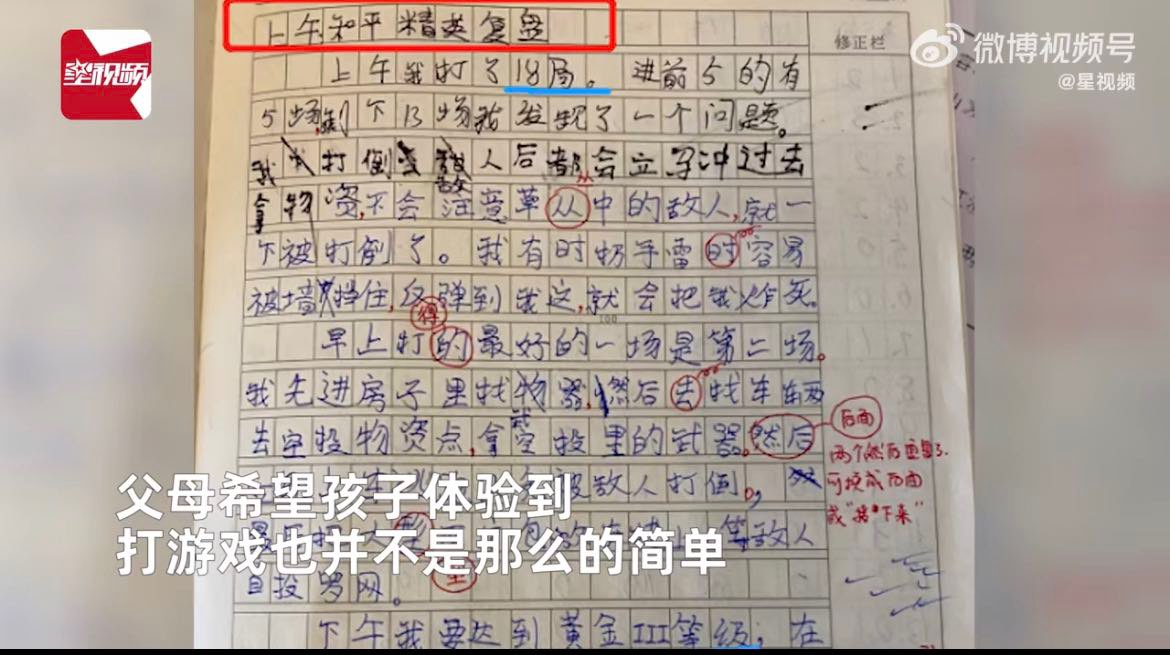 上午和平精英复盘
修正栏
星视频
微博视频号
@星视频
上午我打了18局。进前5的有
5场,剩下13场我发现了一个问题。
我打倒敌人后都会立马冲过去
拿物资,不会注意草从中的敌人,就一
丛
下被打倒了。我有时扔手雷时容易
被墙挡住,反弹到我这,就会把我炸死。
得
早上打的最好的一场是第二场。
我先进房子里找武器,然后去找车辆
去空投物资点,拿空投里的武器。然后
后面
两个然后重复了.
可换成后面
或"接下来"
被敌人打倒。
父母希望孩子体验到
打游戏也并不是那么的简单
等敌人
自投罗网。
下午我要达到黄金III等级,在